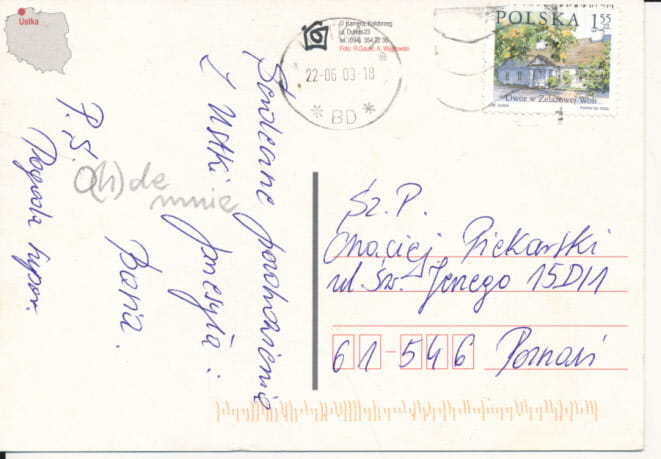 Ustka
© Kamera, Kołobrzeg
ul. Dubois 23
tel. (094) 354 22 36
Foto: R.Gauer, A. Węglowski
22-06 09-18
BD
POLSKA 1,55 zł
Dwór w Żelazowej Woli
Serdeczne pozdrowienia
z Ustki przesyła:
Basia.
P.S.
Pogoda super.
O(h) de
mnie
Sz. P.
Maciej Piekarski
ul. Św. Jerzego 15D/1
61-546 Poznań